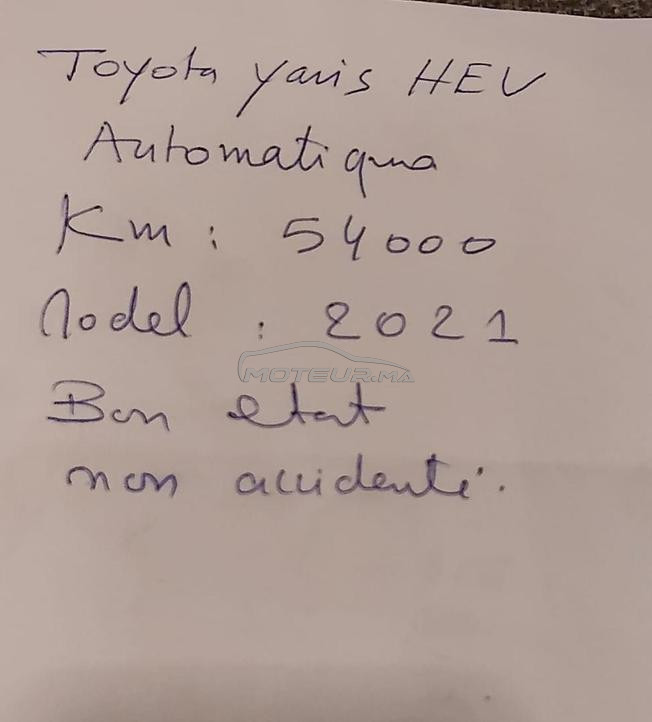 Toyota Yaris HEV
Automatique
Km : 54000
Model : 2021
MOTEUR.MA
Bon etat
non accidenté.